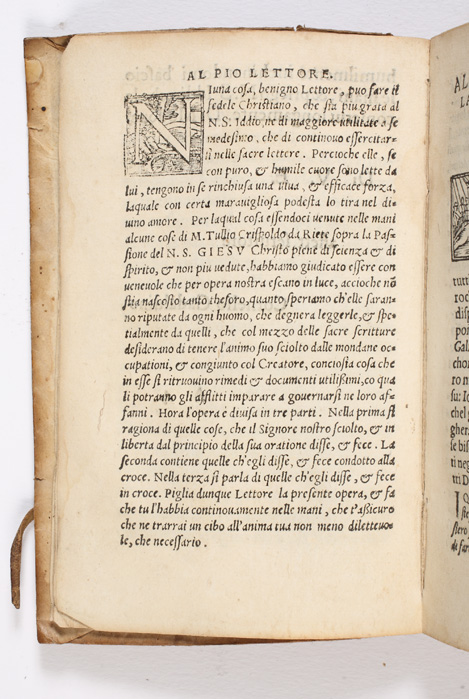 AL PIO LETTORE.
Niuna cosa, benigno Lettore, puo fare il
fedele Christiano, che sia piu grata al
N.S. Iddio, ne di maggiore utilitate a se
medesimo, che di continouo essercitar-
si nelle sacre lettere. Percioche elle, se
con puro, & humile cuore sono lette da
lui, tengono in se rinchiusa una uiua, & efficace forza,
laquale con certa marauigliosa podestà lo tira nel di-
uino amore. Per laqual cosa essendoci uenute nelle mani
alcune cose di M. Tullio Crispoldo da Riete sopra la Pas-
sione del N. S. GIESV Christo piene di scienza & di
spirito, & non piu uedute, habbiamo giudicato essere con
ueneuole che per opera nostra escano in luce, accioche nō
stia nascosto tanto thesoro, quanto speriamo ch'elle saran-
no riputate da ogni huomo, che degnera leggerle, & spe-
tialmente da quelli, che col mezzo delle sacre scritture
desiderano di tenere l'animo suo sciolto dalle mondane oc-
cupationi, & congiunto col Creatore, conciosia cosa che
in esse si ritruouino rimedi & documenti utilissimi, co qua
li potranno gli afflitti imparare a gouernarsi ne loro af-
fanni. Hora l'opera è diuisa in tre parti. Nella prima si
ragiona di quelle cose, che il Signore nostro sciolto, & in
liberta dal principio della sua oratione disse, & fece. La
seconda contiene quelle ch'egli disse, & fece condotto alla
croce. Nella terza si parla di quelle ch'egli disse, & fece
in croce. Piglia dunque Lettore la presente opera, & fa
che tu l'habbia continouamente nelle mani, che t'assicuro
che ne trarrai un cibo all'anima tua non meno diletteuo-
le, che necessario.